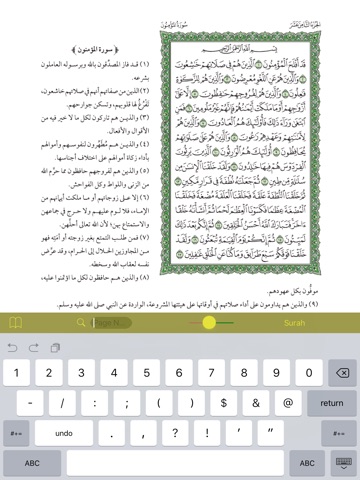 الجزء الثامن عشر
سورة المؤمنون
بِسْمِ اللَّهِ الرَّحْمَٰنِ الرَّحِيمِ
قَدْ أَفْلَحَ الْمُؤْمِنُونَ ١ الَّذِينَ هُمْ فِي صَلَاتِهِمْ خَاشِعُونَ
٢ وَالَّذِينَ هُمْ عَنِ اللَّغْوِ مُعْرِضُونَ ٣ وَالَّذِينَ هُمْ لِلزَّكَاةِ
فَاعِلُونَ ٤ وَالَّذِينَ هُمْ لِفُرُوجِهِمْ حَافِظُونَ ٥ إِلَّا عَلَىٰ
أَزْوَاجِهِمْ أَوْ مَا مَلَكَتْ أَيْمَانُهُمْ فَإِنَّهُمْ غَيْرُ مَلُومِينَ ٦ فَمَنِ
ابْتَغَىٰ وَرَاءَ ذَٰلِكَ فَأُولَٰئِكَ هُمُ الْعَادُونَ ٧ وَالَّذِينَ هُمْ
لِأَمَانَاتِهِمْ وَعَهْدِهِمْ رَاعُونَ ٨ وَالَّذِينَ هُمْ عَلَىٰ صَلَوَاتِهِمْ
يُحَافِظُونَ ٩ أُولَٰئِكَ هُمُ الْوَارِثُونَ ١٠ الَّذِينَ يَرِثُونَ
الْفِرْدَوْسَ هُمْ فِيهَا خَالِدُونَ ١١ وَلَقَدْ خَلَقْنَا الْإِنسَانَ مِن
سُلَالَةٍ مِّن طِينٍ ١٢ ثُمَّ جَعَلْنَاهُ نُطْفَةً فِي قَرَارٍ مَّكِينٍ ١٣
ثُمَّ خَلَقْنَا النُّطْفَةَ عَلَقَةً فَخَلَقْنَا الْعَلَقَةَ مُضْغَةً فَخَلَقْنَا
الْمُضْغَةَ عِظَامًا فَكَسَوْنَا الْعِظَامَ لَحْمًا ثُمَّ أَنشَأْنَاهُ خَلْقًا
آخَرَ فَتَبَارَكَ اللَّهُ أَحْسَنُ الْخَالِقِينَ ١٤ ثُمَّ إِنَّكُم بَعْدَ ذَٰلِكَ
لَمَيِّتُونَ ١٥ ثُمَّ إِنَّكُمْ يَوْمَ الْقِيَامَةِ تُبْعَثُونَ ١٦ وَلَقَدْ
خَلَقْنَا فَوْقَكُمْ سَبْعَ طَرَائِقَ وَمَا كُنَّا عَنِ الْخَلْقِ غَافِلِينَ ١٧
﴿ سورة المؤمنون ﴾
(١) قد فاز المصدِّقون بالله وبرسوله العاملون
بشرعه.
(٢) الذين من صفاتهم أنهم في صلاتهم خاشعون،
تَفْرُغُ لها قلوبهم، وتسكن جوارحهم.
(٣) والذين هم تاركون لكل ما لا خير فيه من
الأقوال والأفعال.
(٤) والذين هم مُطَهِّرون لنفوسهم وأموالهم
بأداء زكاة أموالهم على اختلاف أجناسها.
(٥) والذين هم لفروجهم حافظون مما حرَّم الله
من الزنى واللواط وكل الفواحش.
(٦) إلا على زوجاتهم أو ما ملكت أيمانهم من
الإماء، فلا لوم عليهم ولا حرج في جماعهن
والاستمتاع بهن؛ لأن الله تعالى أحلَّهن.
(٧) فمن طلب التمتع بغير زوجته أو أمَتِه فهو
من المجاوزين الحلال إلى الحرام، وقد عرَّض
نفسه لعقاب الله وسخطه.
(٨) والذين هم حافظون لكل ما اؤتمنوا عليه،
موفُّون بكل عهودهم.
(٩) والذين هم يداومون على أداء صلاتهم في أوقاتها على هيئتها المشروعة، الواردة عن النبي صلى الله عليه وسلم.
Page N...
Surah
1 2 3 4 5 6 7 8 9 0
- / : ; ( ) $ & @ return
#+= undo . , ? ! ' " #+=
ABC ABC